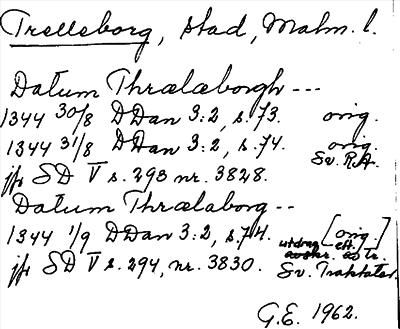 Trelleborg, stad, Malm. l.
Datum Thrælæborgh ---
1344 30/8 DDan 3:2, s. 73. orig.
1344 31/8 DDan 3:2, s. 74. orig.
Sv. R.A.
jfr SD V s. 293 nr. 3828.
Datum Thrælaborg --
1344 1/9 DDan 3:2, s. 74. [orig.]
utdrag eft.
avskr. av tr.
jfr SD V s. 294, nr. 3830. Sv. Traktater.
G.E. 1962.